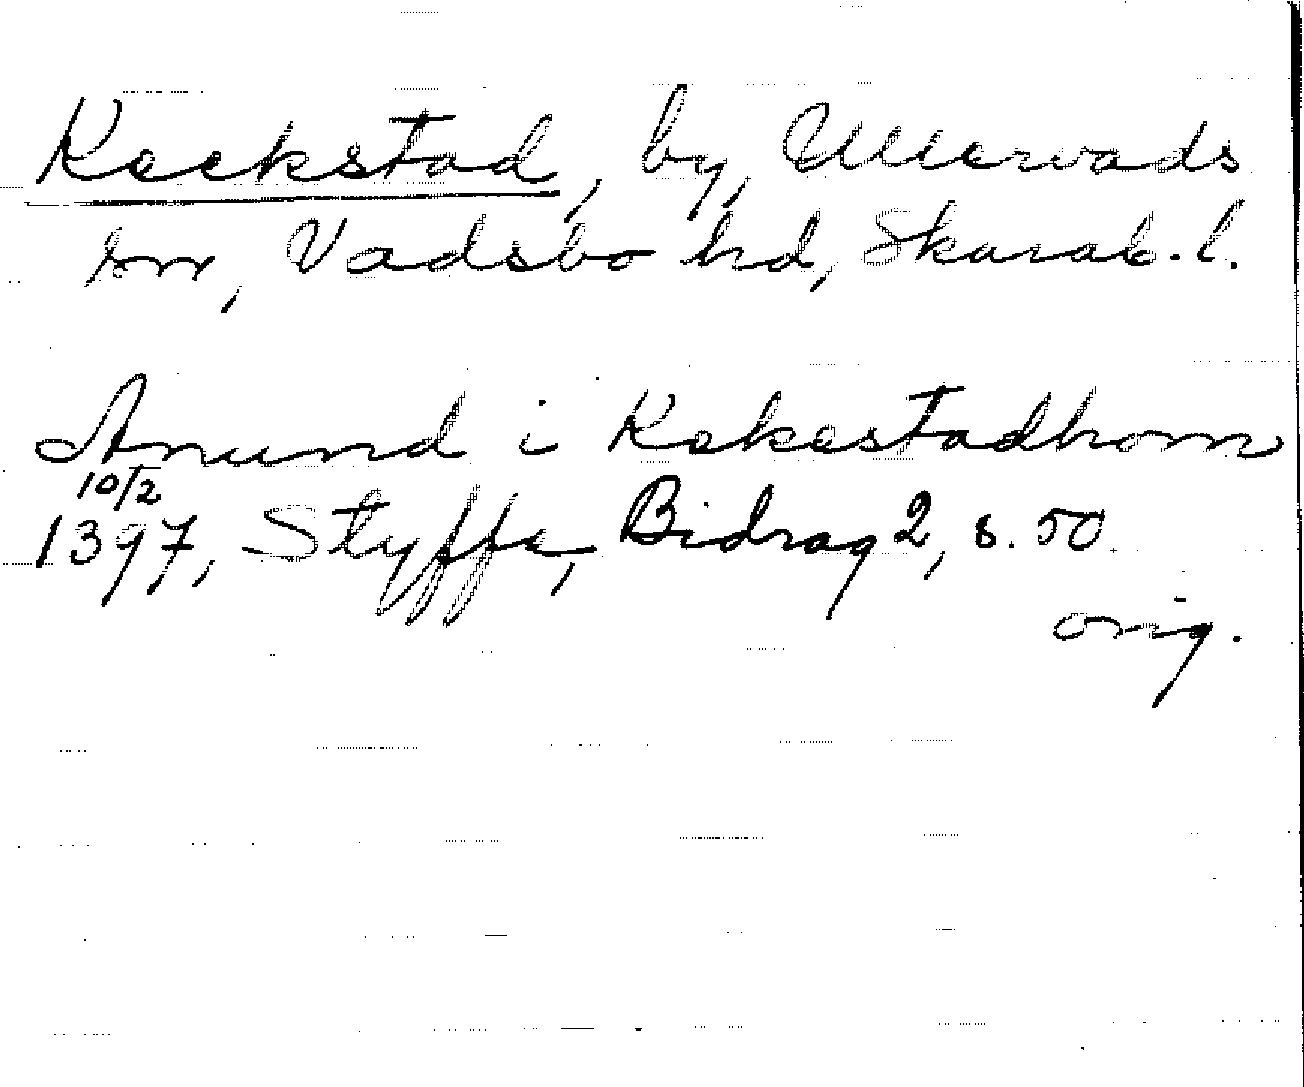 Keckstad, by, Ullervads
sn, Vadsbo hd, Skarab. l.
Anund i Kekestadhom
10/2
1397, Styffe, Bidrag 2, s. 50
orig.